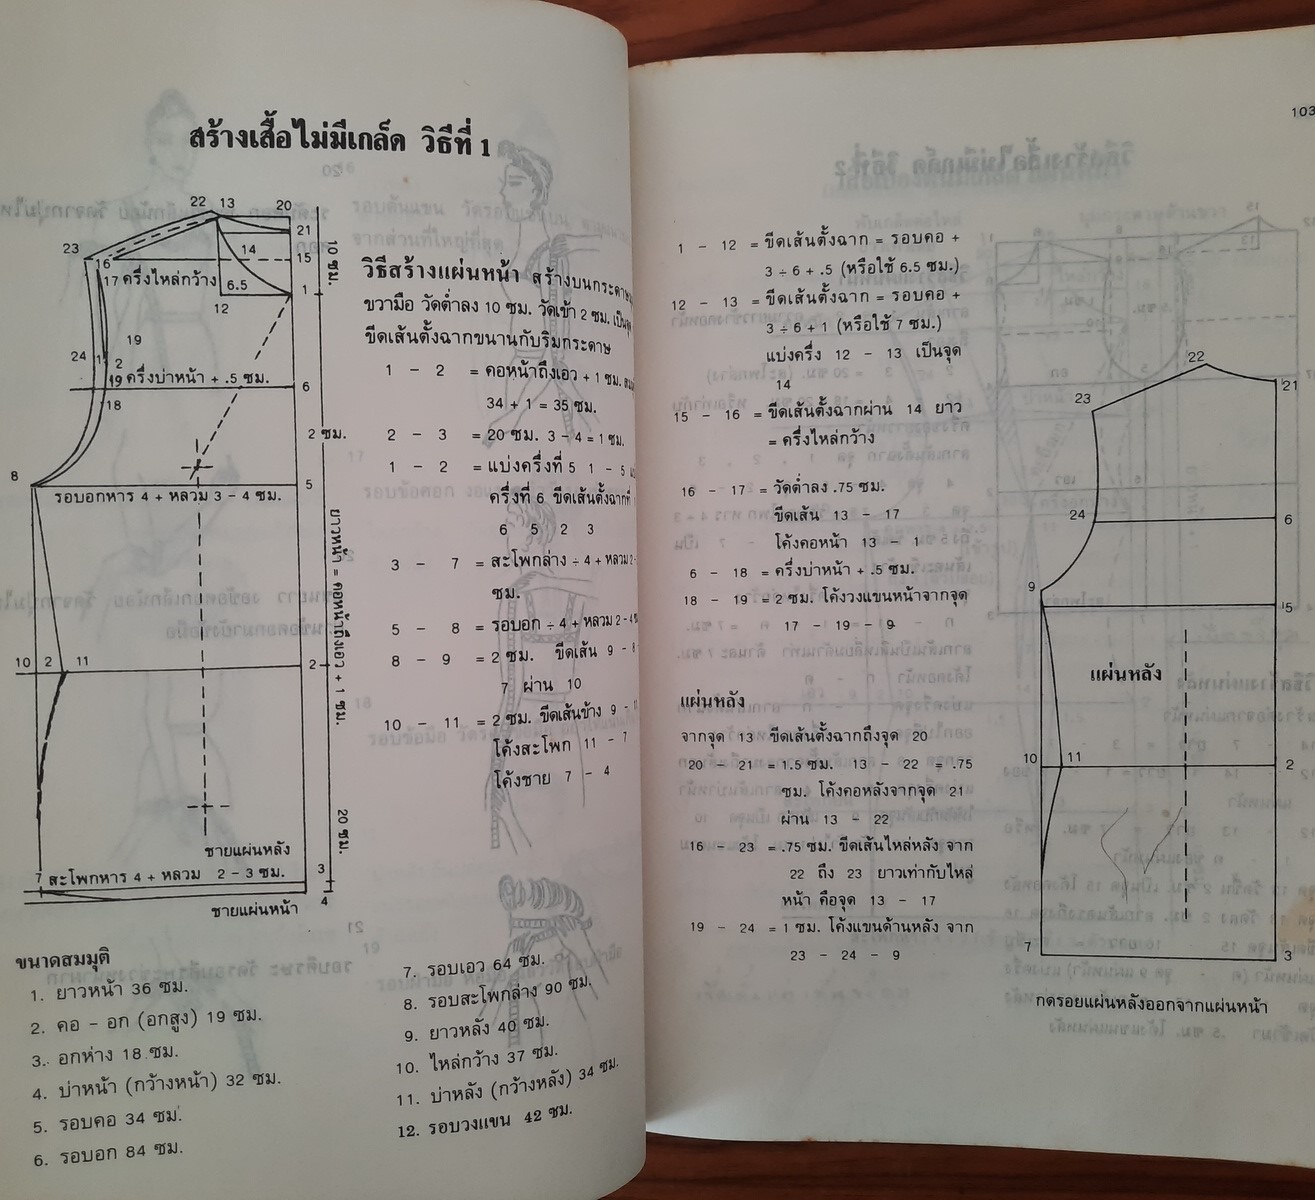 สร้างเสื้อไม่มีเกล็ด วิธีที่ 1
22 13 20
21
23
14
15
10 ซม.
16
17 ครึ่งไหล่กว้าง 6.5
1
12
19
24
2
19 ครึ่งบ่าหน้า + .5 ซม.
6
18
2 ซม.
8
5
รอบอกหาร 4 + หลวม 3 - 4 ซม.
ยาวหน้า = คอหน้าถึงเอว + 1 ซม.
10 2 11
2
20 ซม.
ชายแผ่นหลัง
7 สะโพกหาร 4 + หลวม 2 - 3 ซม.
3
4
ชายแผ่นหน้า
วิธีสร้างแผ่นหน้า สร้างบนกระดาษ
ขวามือ วัดต่ำลง 10 ซม. วัดเข้า 2 ซม. เป็น
ขีดเส้นตั้งฉากขนานกับริมกระดาษ
1 - 2 = คอหน้าถึงเอว + 1 ซม.
34 + 1 = 35 ซม.
2 - 3 = 20 ซม. 3 - 4 = 1 ซม.
1 - 2 = แบ่งครึ่งที่ 5 1 - 5
ครึ่งที่ 6 ขีดเส้นตั้งฉากที่
6 5 2 3
3 - 7 = สะโพกล่าง ÷ 4 + หลวม 2 -
ซม.
5 - 8 = รอบอก ÷ 4 + หลวม 2 - 4
8 - 9 = 2 ซม. ขีดเส้น 9 - 8
7 ผ่าน 10
10 - 11 = 2 ซม. ขีดเส้นข้าง 9 - 11
โค้งสะโพก 11 - 7
โค้งชาย 7 - 4
ขนาดสมมุติ
1. ยาวหน้า 36 ซม.
2. คอ - อก (อกสูง) 19 ซม.
3. อกห่าง 18 ซม.
4. บ่าหน้า (กว้างหน้า) 32 ซม.
5. รอบคอ 34 ซม.
6. รอบอก 84 ซม.
7. รอบเอว 64 ซม.
8. รอบสะโพกล่าง 90 ซม.
9. ยาวหลัง 40 ซม.
10. ไหล่กว้าง 37 ซม.
11. บ่าหลัง (กว้างหลัง) 34 ซม.
12. รอบวงแขน 42 ซม.
103
1 - 12 = ขีดเส้นตั้งฉาก = รอบคอ +
3 ÷ 6 + .5 (หรือใช้ 6.5 ซม.)
12 - 13 = ขีดเส้นตั้งฉาก = รอบคอ +
3 ÷ 6 + 1 (หรือใช้ 7 ซม.)
แบ่งครึ่ง 12 - 13 เป็นจุด
14
15 - 16 = ขีดเส้นตั้งฉากผ่าน 14 ยาว
= ครึ่งไหล่กว้าง
16 - 17 = วัดต่ำลง .75 ซม.
ขีดเส้น 13 - 17
โค้งคอหน้า 13 - 1
6 - 18 = ครึ่งบ่าหน้า + .5 ซม.
18 - 19 = 2 ซม. โค้งวงแขนหน้าจากจุด
17 - 19 - 9
แผ่นหลัง
จากจุด 13 ขีดเส้นตั้งฉากถึงจุด 20
20 - 21 = 1.5 ซม. 13 - 22 = .75
ซม. โค้งคอหลังจากจุด 21
ผ่าน 13 - 22
16 - 23 = .75 ซม. ขีดเส้นไหล่หลัง จาก
22 ถึง 23 ยาวเท่ากับไหล่
หน้า คือจุด 13 - 17
19 - 24 = 1 ซม. โค้งแขนด้านหลัง จาก
23 - 24 - 9
22
21
23
24
6
9
5
แผ่นหลัง
10 11
2
7
3
กดรอยแผ่นหลังออกจากแผ่นหน้า